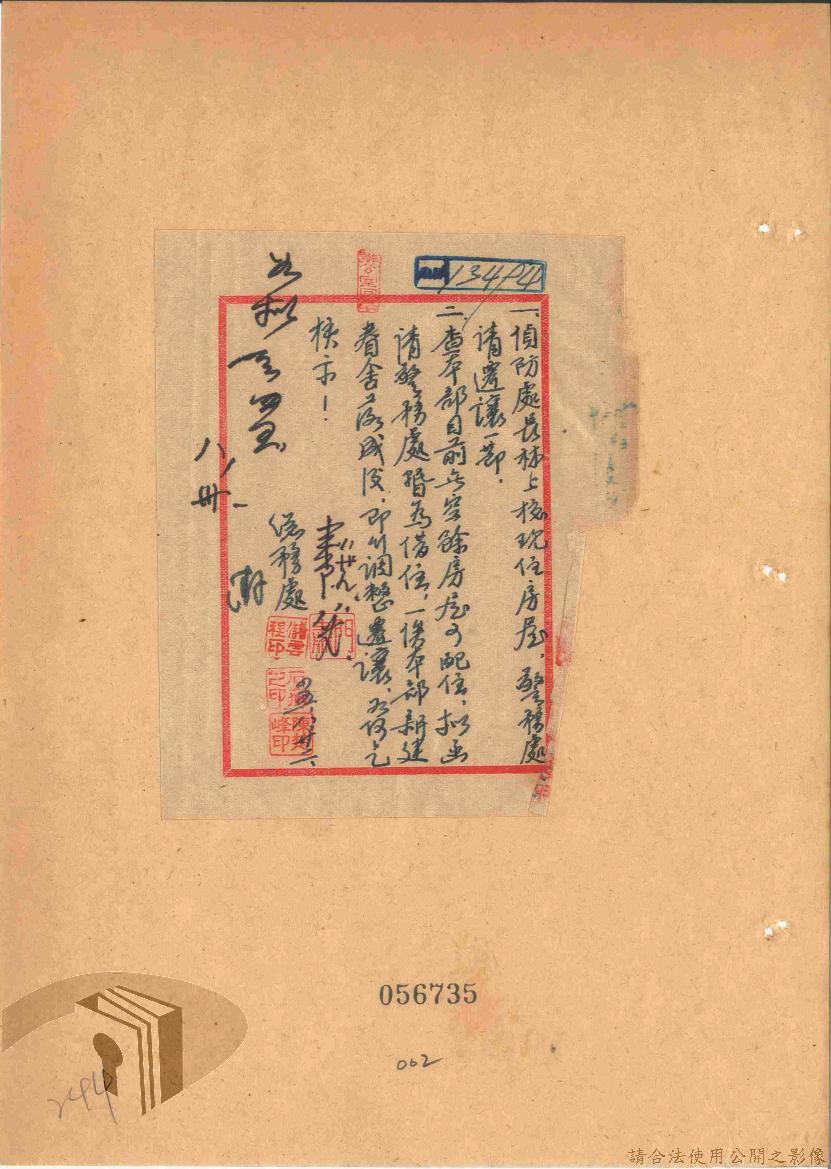 13494
一、偵防處長秘上校現住房屋,警務處
請遷讓一節.
二、查本部目前無空餘房屋可配住,拟函
請警務處暫為借住,一俟本部新建
眷舍落成後,即行調整遷讓,如何乞
核示!
總務處
如拟
八、卅、
056735
002
244
請合法使用公開之影像